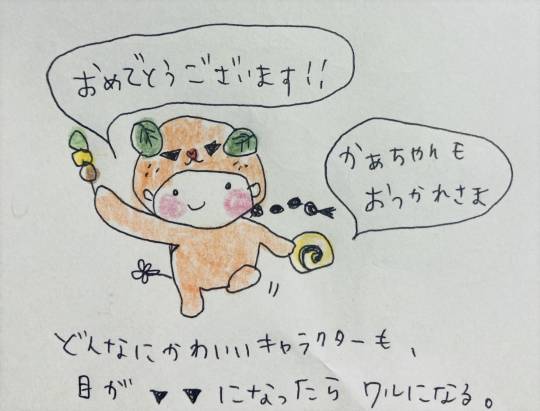 おめでとうございます!!
かあちゃんも
おつかれさま
どんなにかわいいキャラクターも、
目が▼▼になったらワルになる。